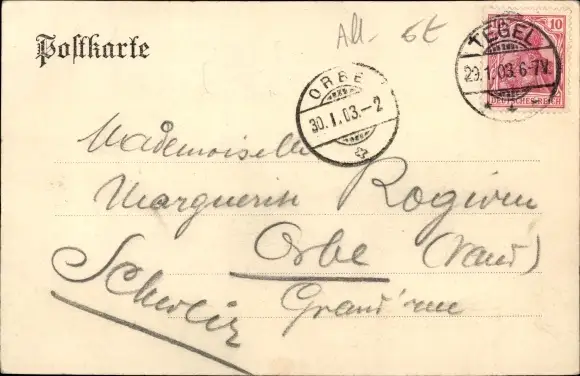 Postkarte
All- 6£
10
TEGEL
29.1.03.6-7N.
DEUTSCHES REICH
ORBE
30.I.03.-2
Mademoiselle
Marguerite Rogivue
Orbe (Vaud)
Grand'rue
Schweiz